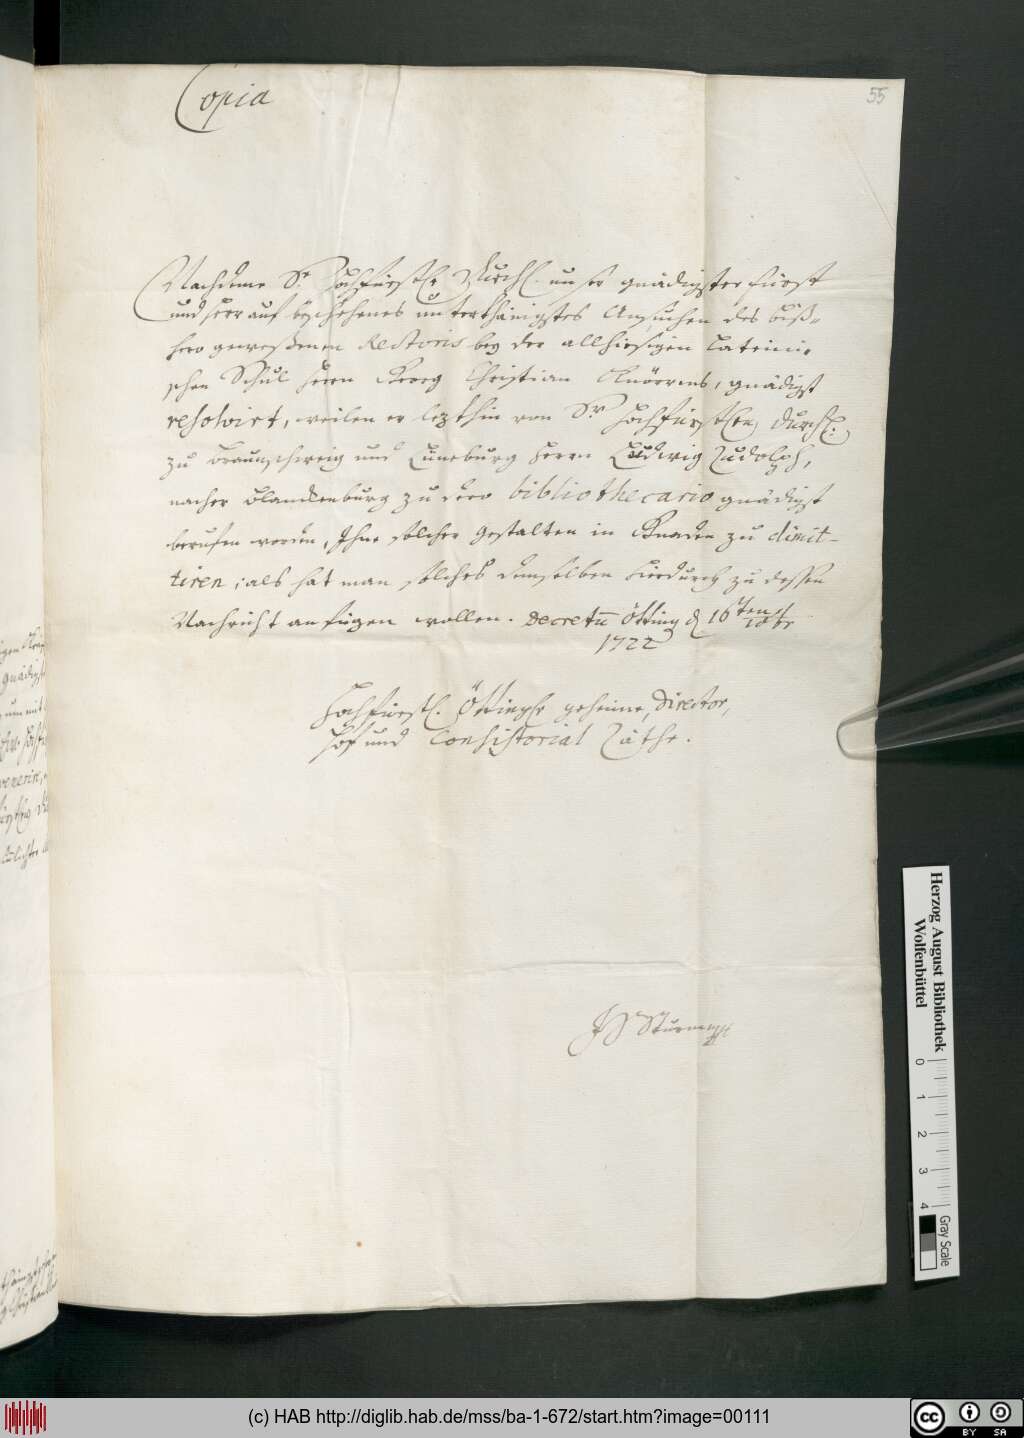 55
Copia
Nachdeme Sr. Hochfürstl. Durchl. unser gnädigster Fürst
und Herr auf beschehenes unterthänigstes Ansuchen des biß-
hero geweßenen Rectoris bey der allhiesigen Lateini-
schen Schul Herrn Georg Christian gnädigst
resolvirt, weilen er letzthin von Sr. Hochfürstlen Durchl:
zu Braunschweig und Lüneburg Herrn Ludwig Rudolph,
nacher Blanckenburg zu dero bibliothecario gnädigst
berufen worden, Ihne solcher Gestalten in Gnaden zu dimit-
tiren; als hat man solches demselben hierdurch zu dessen
Nachricht anfügen wollen. Decretū Ötting d. 16ten
1722
Hochfürstl. Ötting. geheime, Director,
Hof und Consistorial Räthe.
Herzog August Bibliothek
Wolfenbüttel
0 1 2 3 4
Gray Scale
(c) HAB http://diglib.hab.de/mss/ba-1-672/start.htm?image=00111
cc BY SA